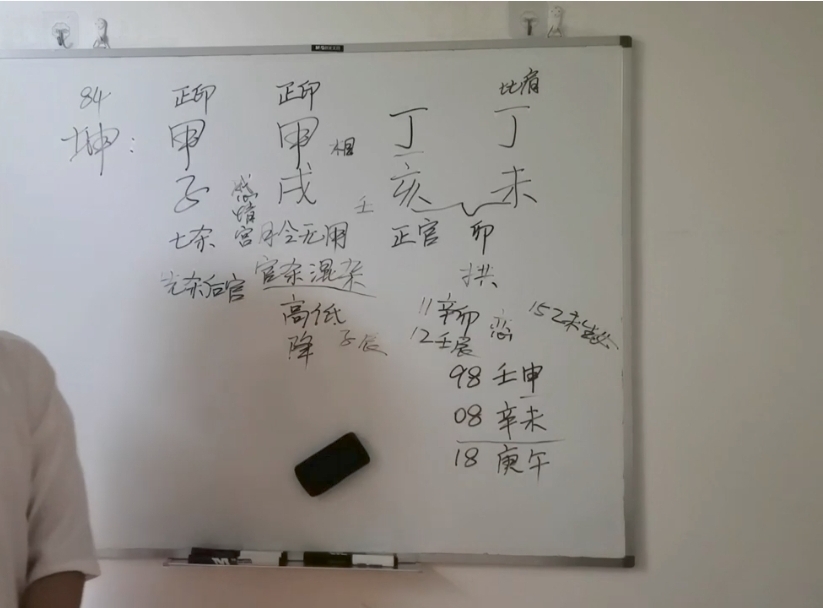 84 正印 正印 比肩
坤: 甲 甲 相 丁 丁
子 戌 亥 未
婚
宫
壬
七杀 月令无用 正官 卯
先杀后官 官杀混杂 拱
高低
降 子辰
11辛卯 恋
12壬辰
15乙未
98 壬申
08 辛未
18 庚午